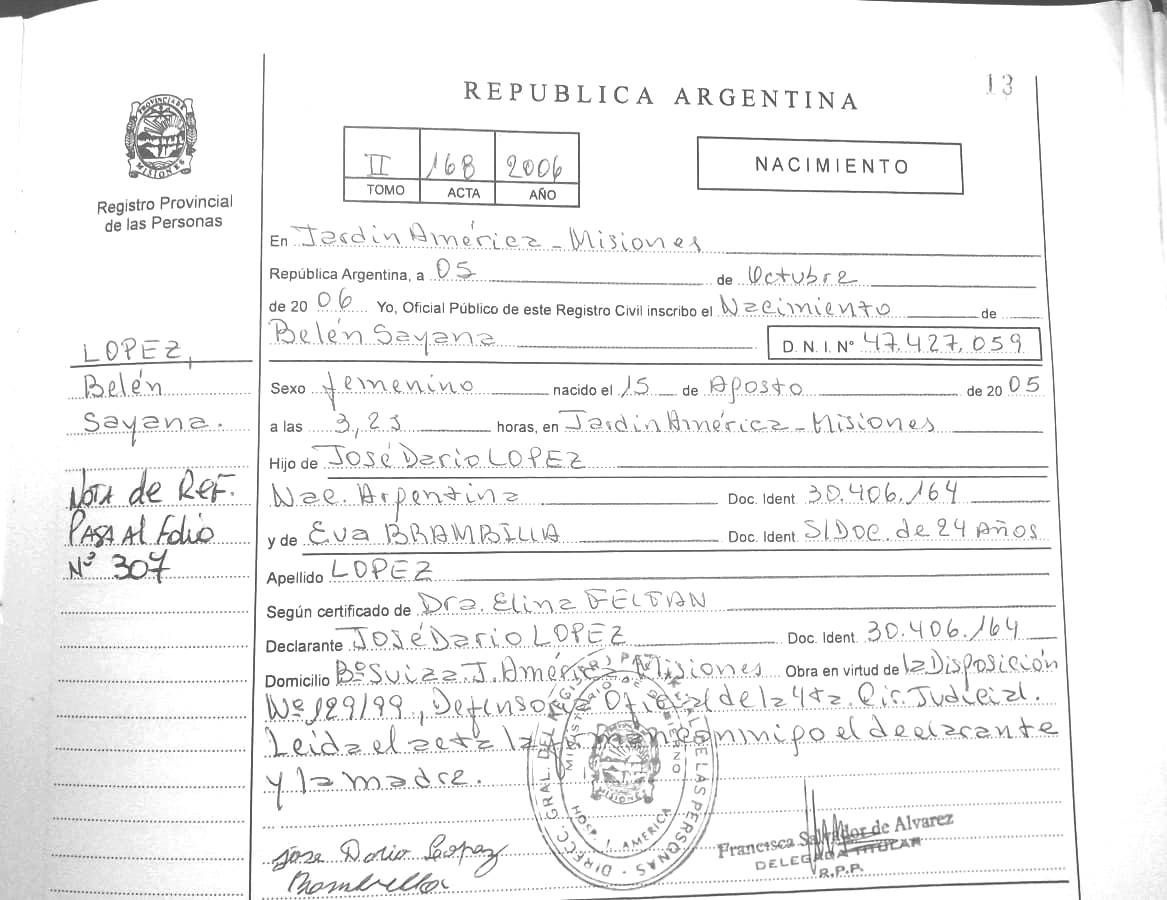 13
REPUBLICA ARGENTINA
PROVINCIA DE MISIONES
Registro Provincial
de las Personas
II 168 2006
TOMO ACTA AÑO
NACIMIENTO
En Jardin América - Misiones
República Argentina, a 05 de Octubre
de 2006 Yo, Oficial Público de este Registro Civil inscribo el Nacimiento de
Belén Sayana D.N.I.Nº 47.427.059
LOPEZ,
Belén
Sayana.
Sexo femenino nacido el 15 de Agosto de 2005
a las 3,23 horas, en Jardin América - Misiones
Hijo de José Dario LOPEZ
Nac. Argentina Doc. Ident 30.406.164
y de Eva BRAMBILLA Doc. Ident S/Doc. de 24 Años
Apellido LOPEZ
NOTA de REF.
PASA Al Folio
Nº 307
Según certificado de Dra. Elina
Declarante José Dario LOPEZ Doc. Ident. 30.406.164
Domicilio Bº Suiza. J. América Misiones Obra en virtud de la Disposición
Nº 129/99, Defensoria Oficial de la 4ta. Cir. Judicial.
Leida el acta la firman conmigo el declarante
y la madre.
DIRECC. GRAL. DEL REGISTRO PCIAL. DE LAS PERSONAS
MINISTERIO DE GOBIERNO
MISIONES
HOSP. J. AMERICA
Jose Dario Lopez
Brambilla
Francisca Salvador de Alvarez
DELEGADA TITULAR
R.P.P.